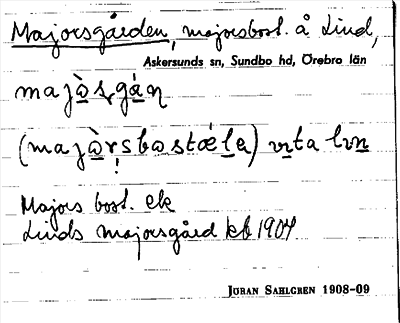 Majorsgården, majorsbost. å Lind,
Askersunds sn, Sundbo hd, Örebro län
majò̲ʂgá̲ɳ
(majò̲rsbostæ̀le) vi̲ta lɩn̲
Majors bost. ek
Linds majorsgård kb 1904
JÖRAN SAHLGREN 1908-09